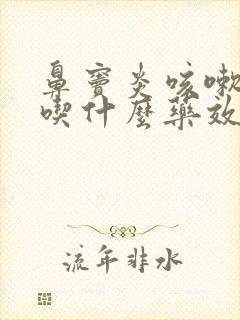 鼻竇炎咳嗽
喫什麼藥效
流年非水